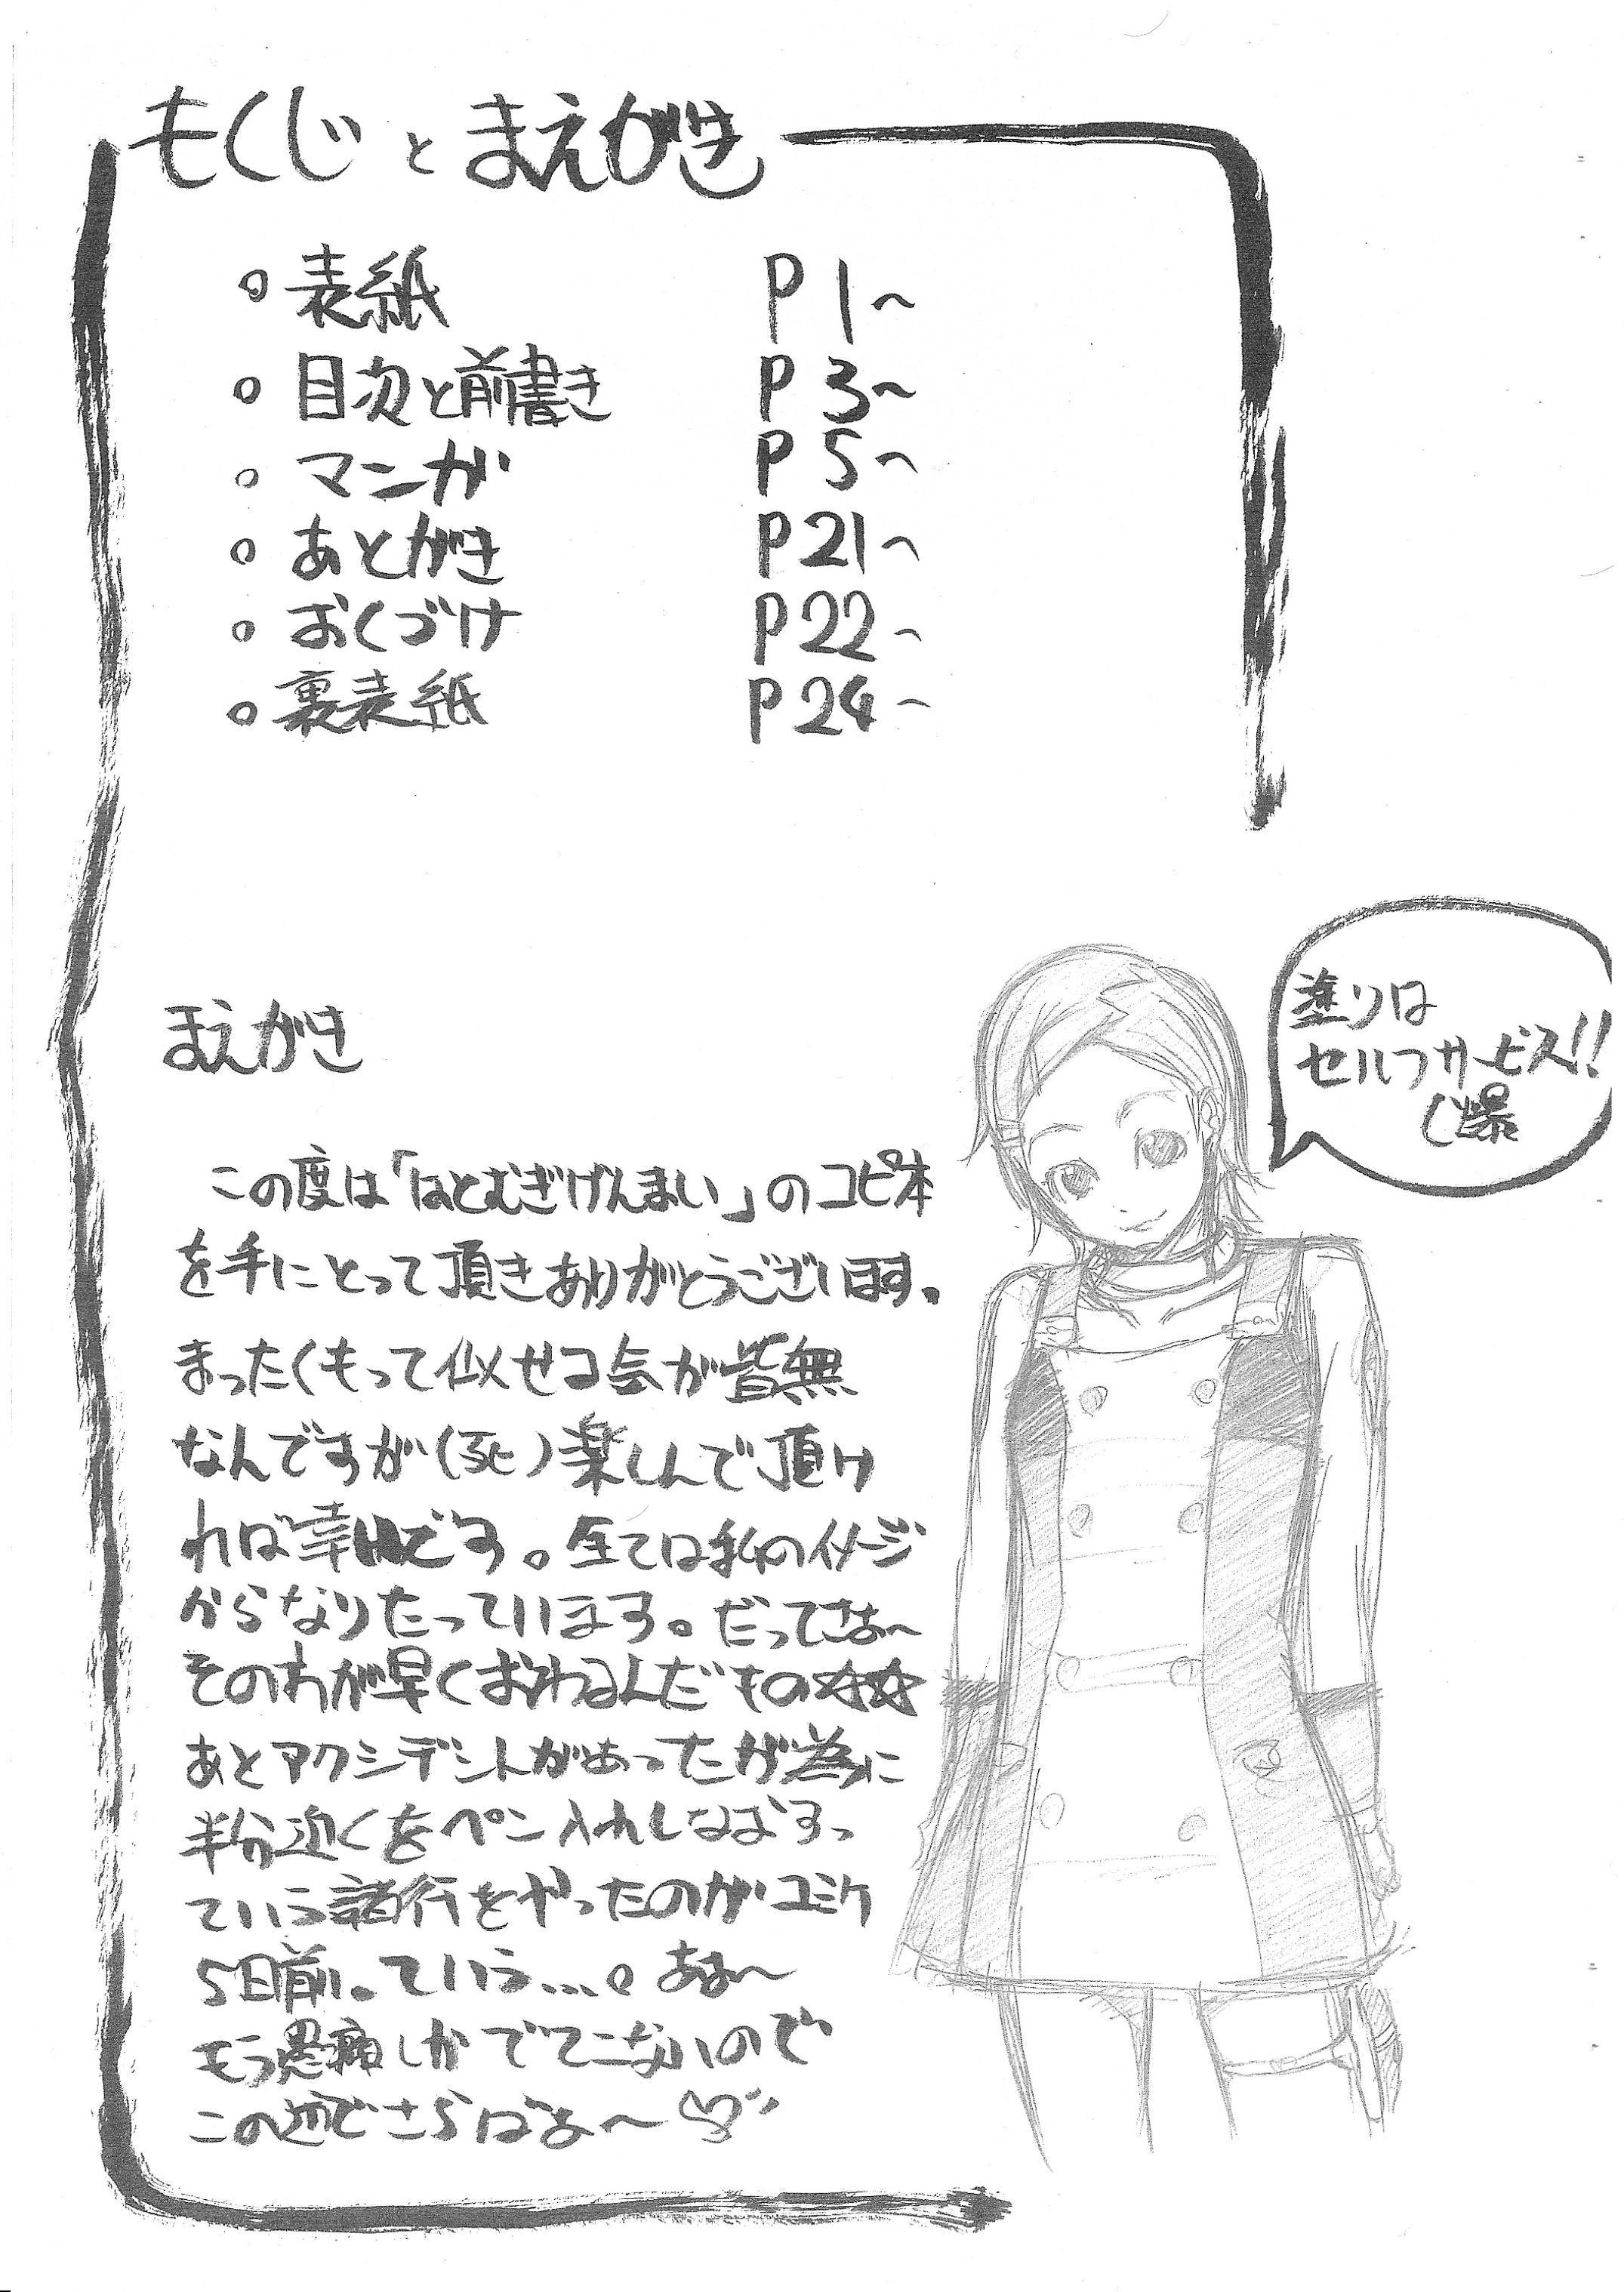 もくじとまえがき
。表紙 P1~
。目次と前書き P3~
。マンガ P5~
。あとがき P21~
。おくづけ P22~
。裏表紙 P24~
塗りは
セルフサービス!!
(爆
まえがき
この度は「はとむぎげんまい」のコピ本
を手にとって頂きありがとうございます。
まったくもって似せコ会が皆無
なんですが(死)楽しんで頂け
れば幸いです。全ては私のイメージ
からなりたっています。だってさぁ~
そのわが早くおわるんだもの☆☆
あとアクシデントがあったが為に
半分近くをペン入れしなおすっ
ていう諸行をやったのがコミケ
5日前。ていう…。あぁ~
もう愚痴しかでてこないので
この辺でさらばぁ~